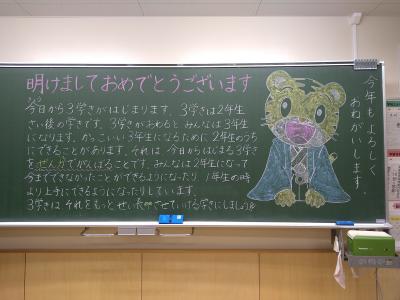 明けましておめでとうございます
今日から3学きがはじまります。3学きは2年生
さい後の学きです。3学きがおわると、みんなは3年生
になります。かっこいい3年生になるために2年生のうち
にできることがあります。それは今日からはじまる3学き
をぜん力でがんばることです。みんなは2年生になって
今までできなかったことができるようになったり、1年生の時
より上手にできるようになったりしています。
3学きは、それをもっとせい長させていける学きにしましょう
今年もよろしく
おねがいします。